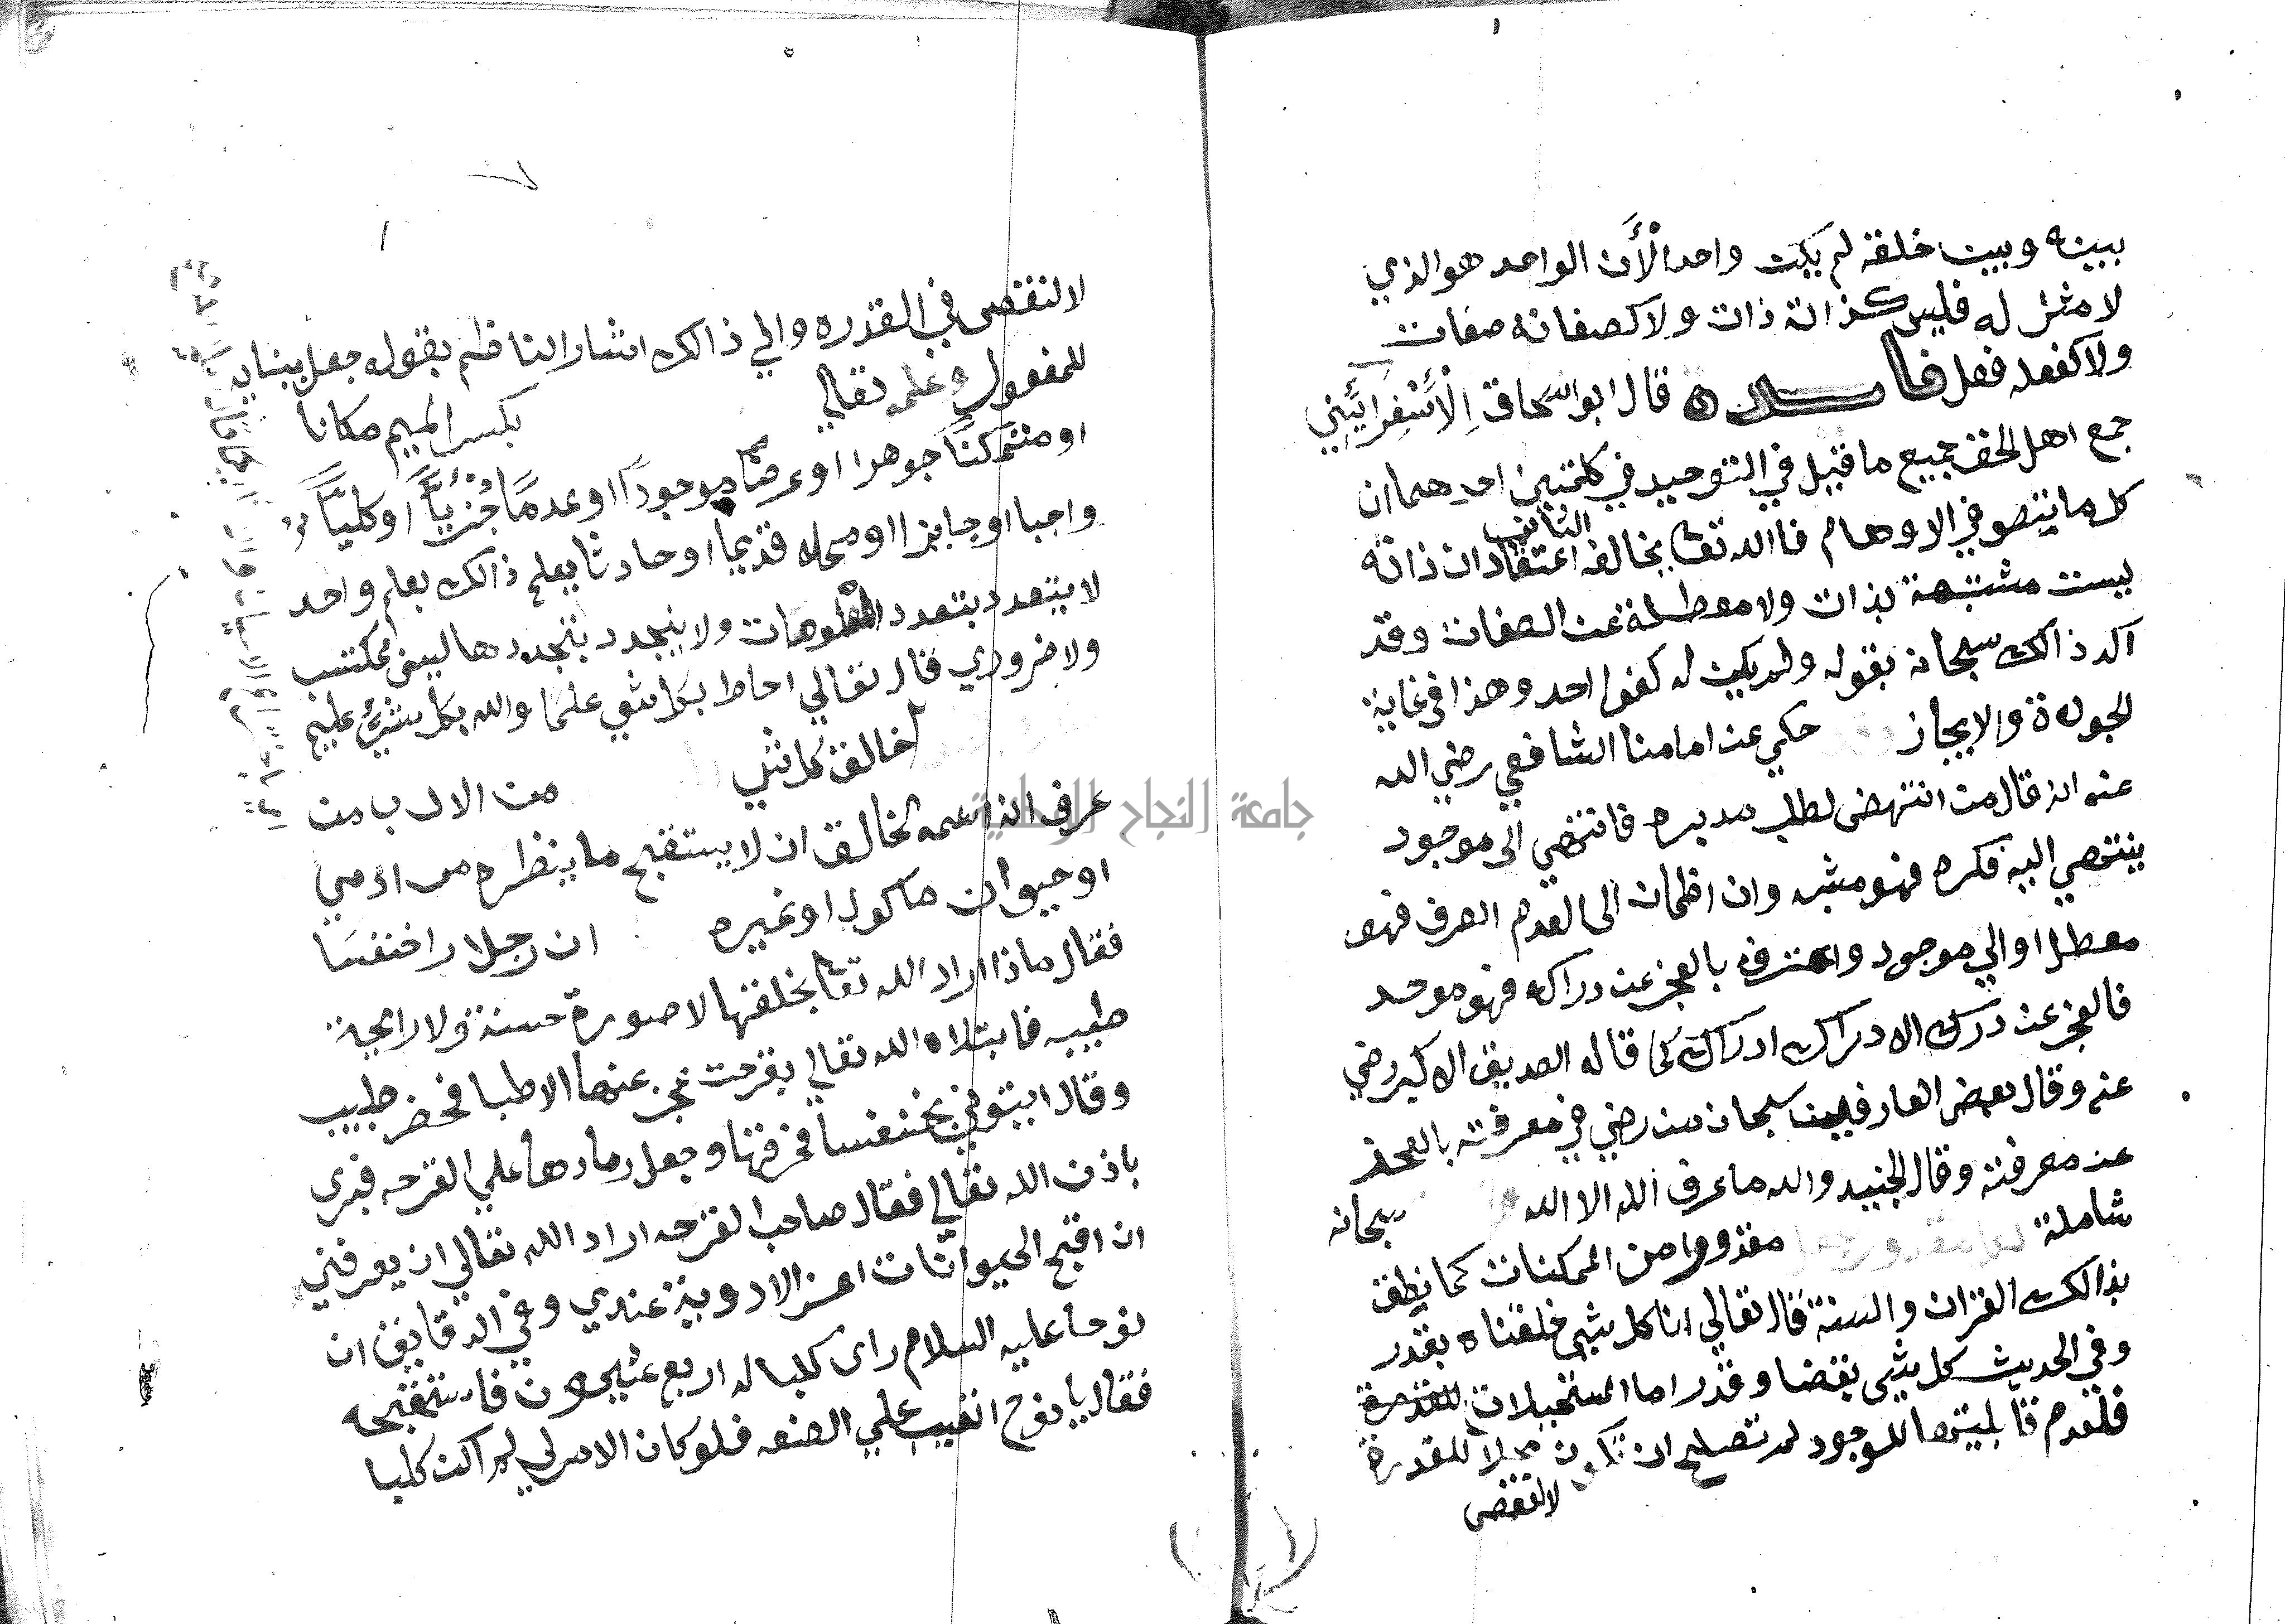 بينه وبين خلقه لم يكن واحد الأن الواحد هو الذي
لا مثل له فليس كذاته ذات ولا كصفاته صفات
ولا كفعله فعل فائدة قال ابو اسحاق الأسفرائيني
جمع اهل الحق جميع ما قيل في التوحيد في كلمتين احدهما ان
كل ما يتصو في الاوهام فاالله تعا بخالفه اعتقاد ان ذاته
الثاني
ليست مشبهة بذات ولا معطلة عن الصفات وقد
اكد ذالك سبحانه بقوله ولم يكن له كفوا احد وهذا في غاية
الجودة والايجاز حكي عن امامنا الشافعي رضي الله
عنه انه قال من انتهض لطلب مدبره فانتهي الى موجود
ينتهي اليه فكره فهو مشبه وان اطمان الى العدم الصرف فهو
معطل او الي موجود واعترف بالعجز عن دراكه فهو موحد
فالعجز عن درك الادراك ادراك كما قاله الصديق الاكبر رضي
عنه وقال بعض العارفين سبحان من رضي في معرفته بالعجز
عن معرفته وقال الجنيد والله ما عرف الله الا الله سبحانه
شاملة مقدورا من الممكنات كما نطق
بذالك القران والسنة قال تعالي انا كل شيي خلقناه بقدر
وفي الحديث كل شيى بقضا وقدر اما المستحيلات
فلعدم قابليتها للوجود لم تصلح ان تكون محلا للقدرة
لالنقص
لالنقص في القدره والي ذالك اشار الناظم بقوله جعل ببنايه
للمفعول وعلمه تعالي بكسر الميم مكانا
او متمكنا جوهرا او عرضا موجودا او عدما جزئيا او كليا
واجبا او جايزا او محالا قديما او حادثا يعلم ذالك بعلم واحد
لا يتعدد بتعدد المعلومات ولا يتجدد بتجددها ليس بمكتسب
ولا ضروري قال تعالي احاط بكل شي علما والله بكل شيئ عليم
خالق كل شي من الادب من
عرف ان اسمه الخالق ان لا يستقبح ما ينظره من ادمي
او حيوان ماكول او غيره ان رجلا را خنفسا
فقال ماذا اراد الله تعا بخلقها لا صورة حسنة ولا رايحة
طيبه فابتلاه الله تعالي بقرحت عجز عنها الاطبا فحضر طبيب
وقال ايتوني بخنفسا فحرقها وجعل رمادها علي القرحه فبرى
باذن الله تعالي فقال صاحب القرحه اراد الله تعالي ان يعرفني
ان اقبح الحيوانات اعز الادوية عندي وفي الدقايق ان
نوحا عليه السلام راى كلبا له اربع عيون فاستقبحه
فقال يا نوح اتعيب علي الصنعه فلو كان الامر لي لم اكن كلبا
جامعة النجاح الوطنية